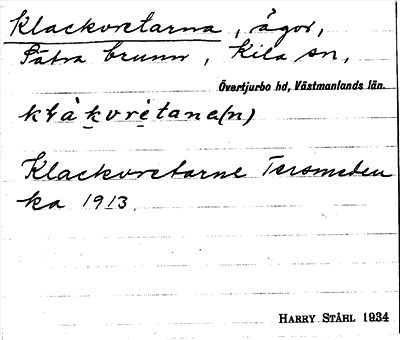 Klackvretarna, ägor,
Sätra brunn, Kila sn,
Övertjurbo hd, Västmanlands län.
Klackvretarne Tersmeden
ka 1913.
HARRY STÅHL 1934